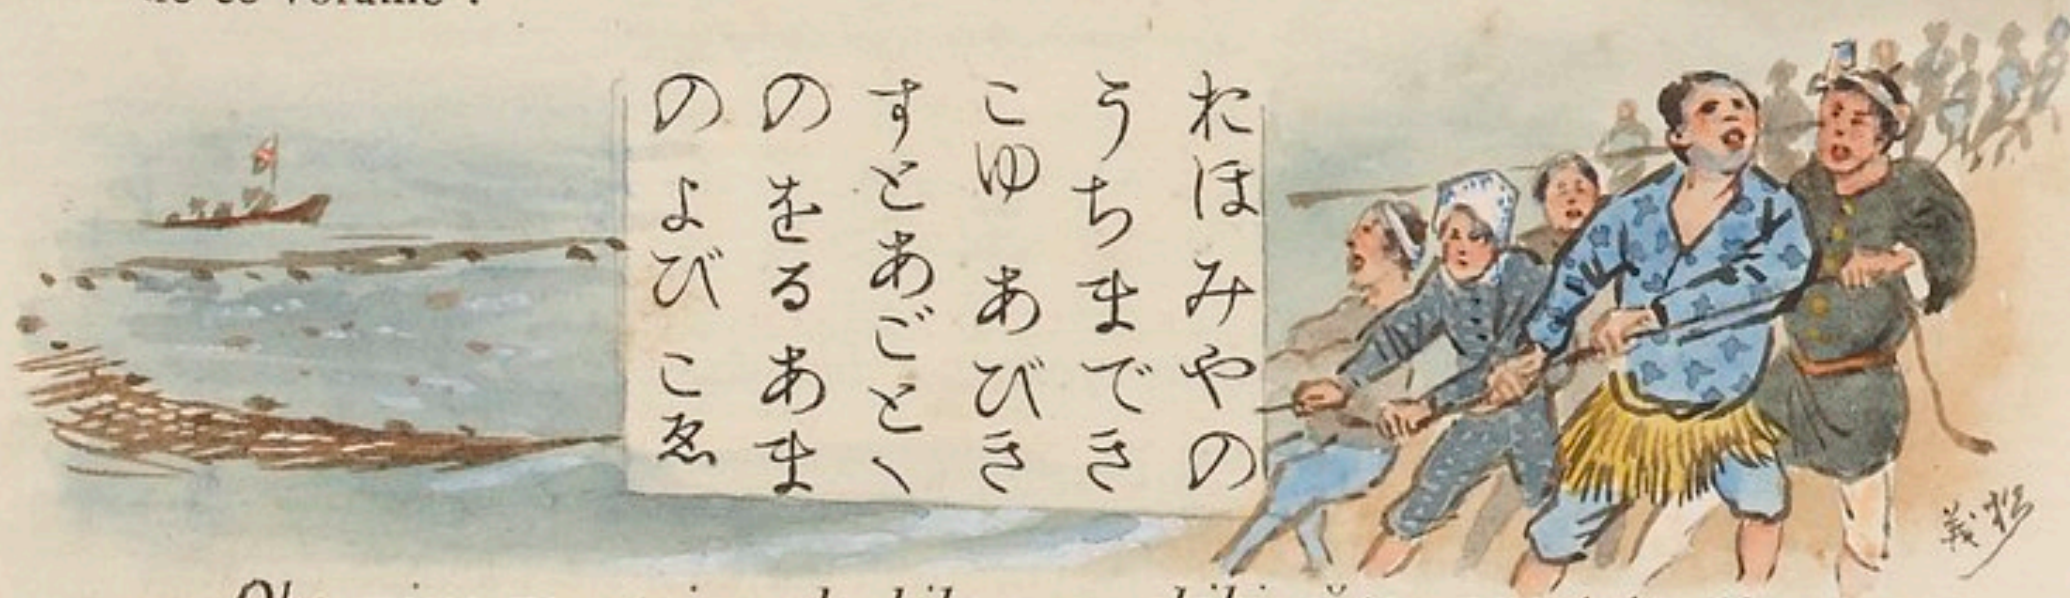 おほみやの
うちまでき
こゆ あびき
すとあごとヽ
のをるあま
のよび こゑ
義松